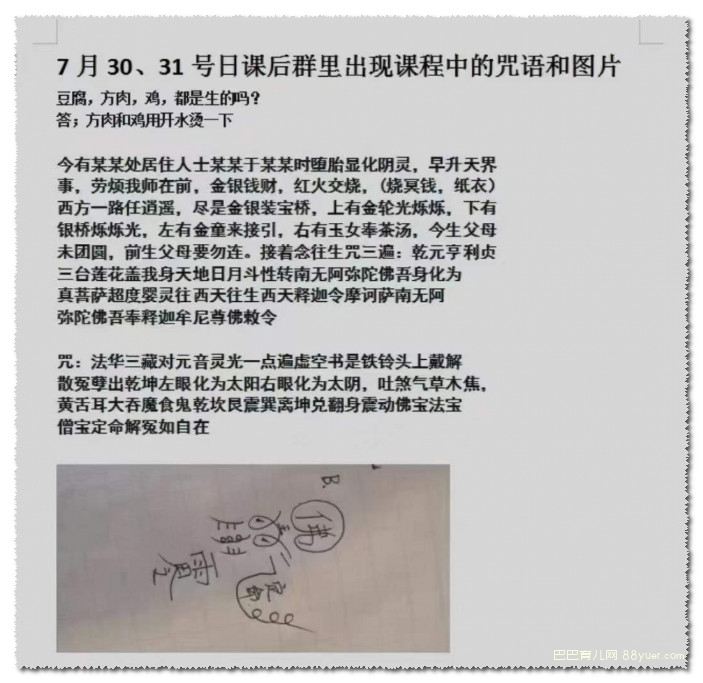 7月30、31号日课后群里出现课程中的咒语和图片
豆腐，方肉，鸡，都是生的吗？
答；方肉和鸡用开水烫一下
今有某某处居住人士某某于某某时堕胎显化阴灵，早升天界
事，劳烦我师在前，金银钱财，红火交烧，(烧冥钱，纸衣）
西方一路任逍遥，尽是金银装宝桥，上有金轮光烁烁，下有
银桥烁烁光，左有金童来接引，右有玉女奉茶汤，今生父母
未团圆，前生父母要勿连。接着念往生咒三遍：乾元亨利贞
三台莲花盖我身天地日月斗性转南无阿弥陀佛吾身化为
真菩萨超度婴灵往西天往生西天释迦令摩诃萨南无阿
弥陀佛吾奉释迦牟尼尊佛敕令
咒：法华三藏对元音灵光一点遍虚空书是铁铃头上戴解
散冤孽出乾坤左眼化为太阳右眼化为太阴，吐煞气草木焦，
黄舌耳大吞魔食鬼乾坎艮震巽离坤兑翻身震动佛宝法宝
僧宝定命解冤如自在
B.
佛
巴巴育儿网 88yuer.com